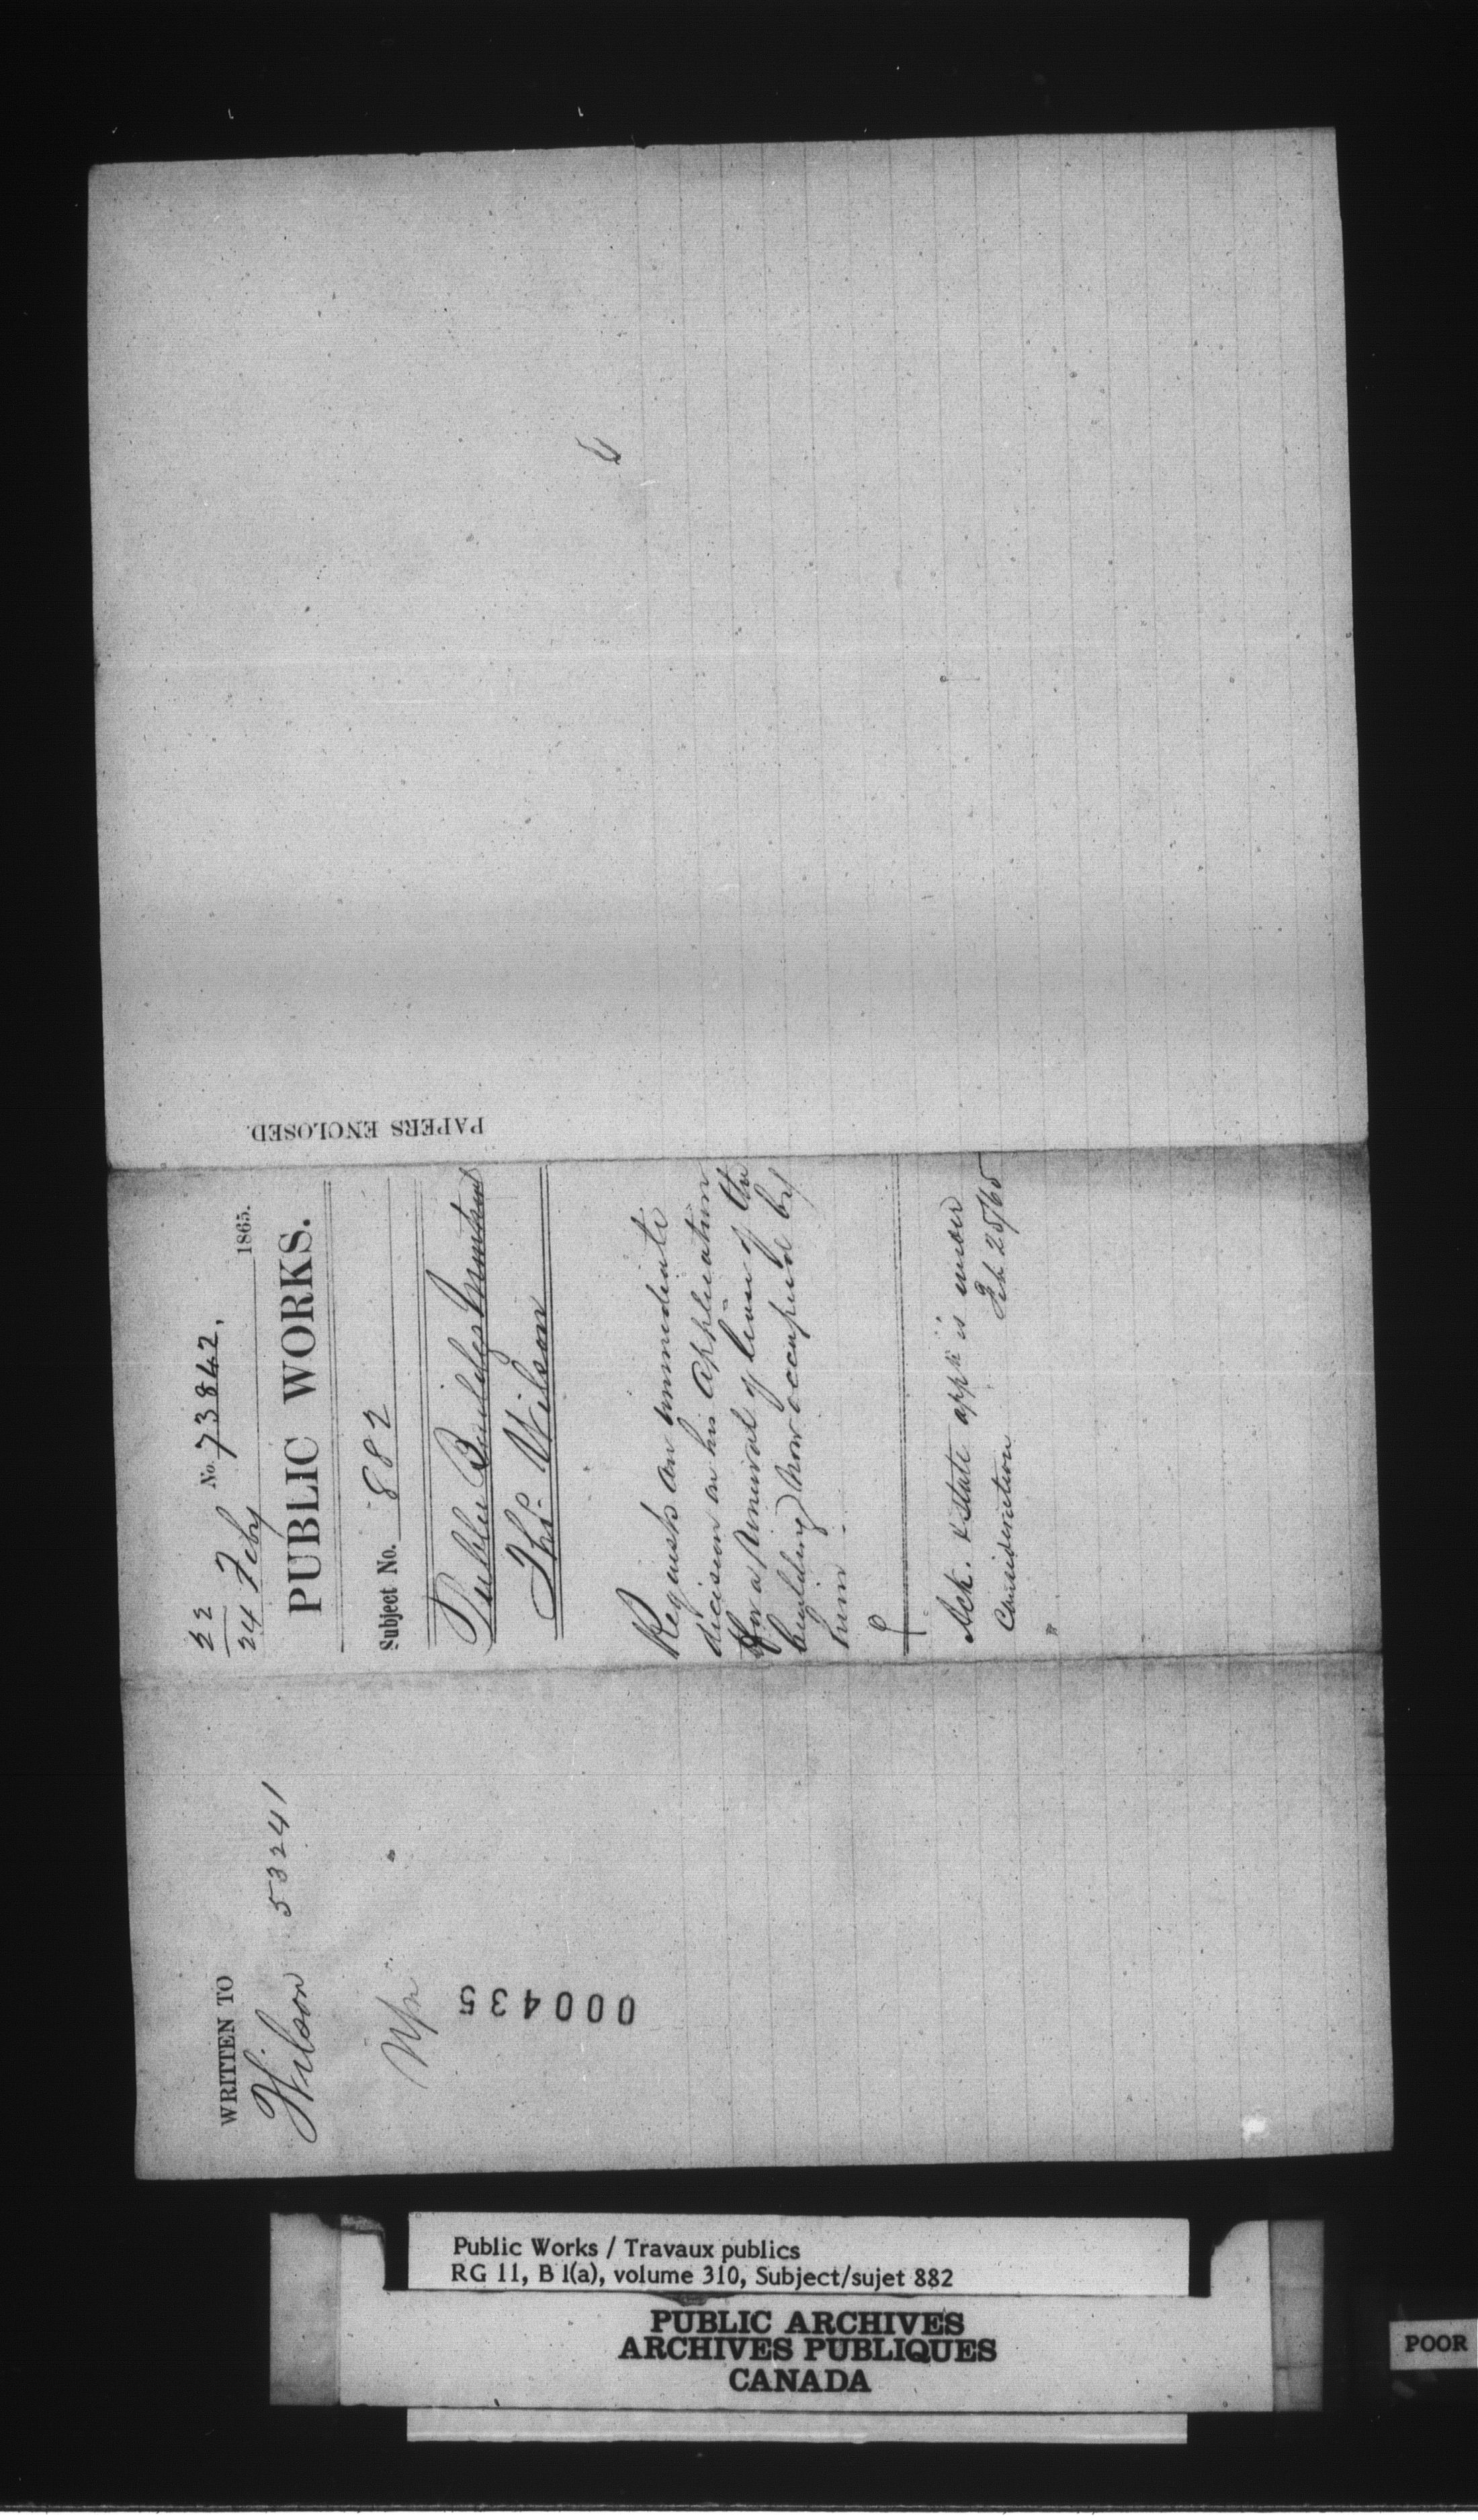 22
24 Feby No. 73842, 1865.
PUBLIC WORKS.
Subject No. 882
Public Buildgs Montreal
Ths. Wilson
Requests an immediate
decision on his application
for a renewal of lease of the
building now occupied by
him.
Ack. & state appn. is under
Consideration Feb 25/65
PAPERS ENCLOSED.
WRITTEN TO
Wilson 53241
000435
Public Works / Travaux publics
RG 11, B 1(a), volume 310, Subject/sujet 882
PUBLIC ARCHIVES
ARCHIVES PUBLIQUES
CANADA
POOR